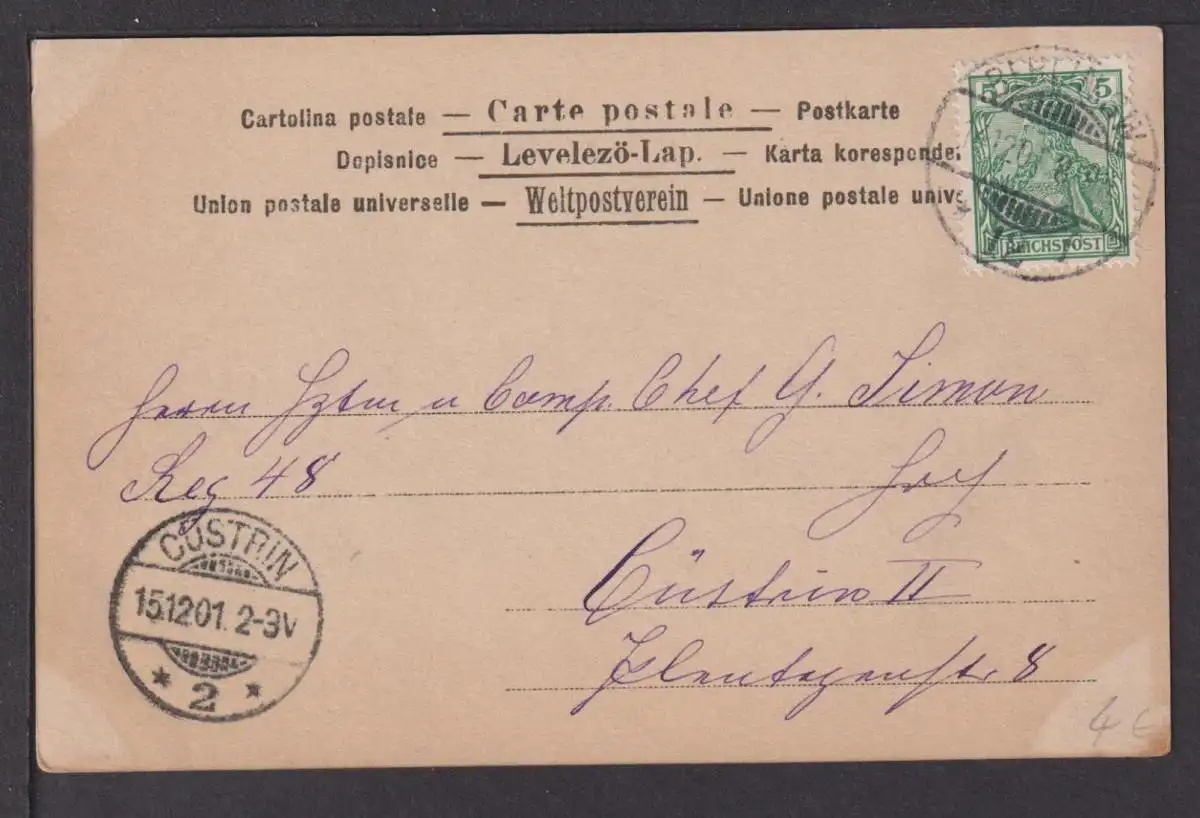 Cartolina postale — Carte postale — Postkarte
Dopisnice — Levelezö-Lap. — Karta korespondei
Union postale universelle — Weltpostverein — Unione postale unive
5 5
REICHSPOST
BERLIN W
Herrn Hptm u Comp. Chef G. Simon
Reg 48
Cüstrin II
8
CÜSTRIN
15.12.01. 2-3V
* 2 *
4 €